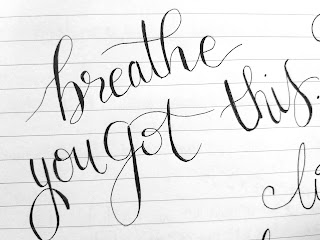 breathe
you got this.